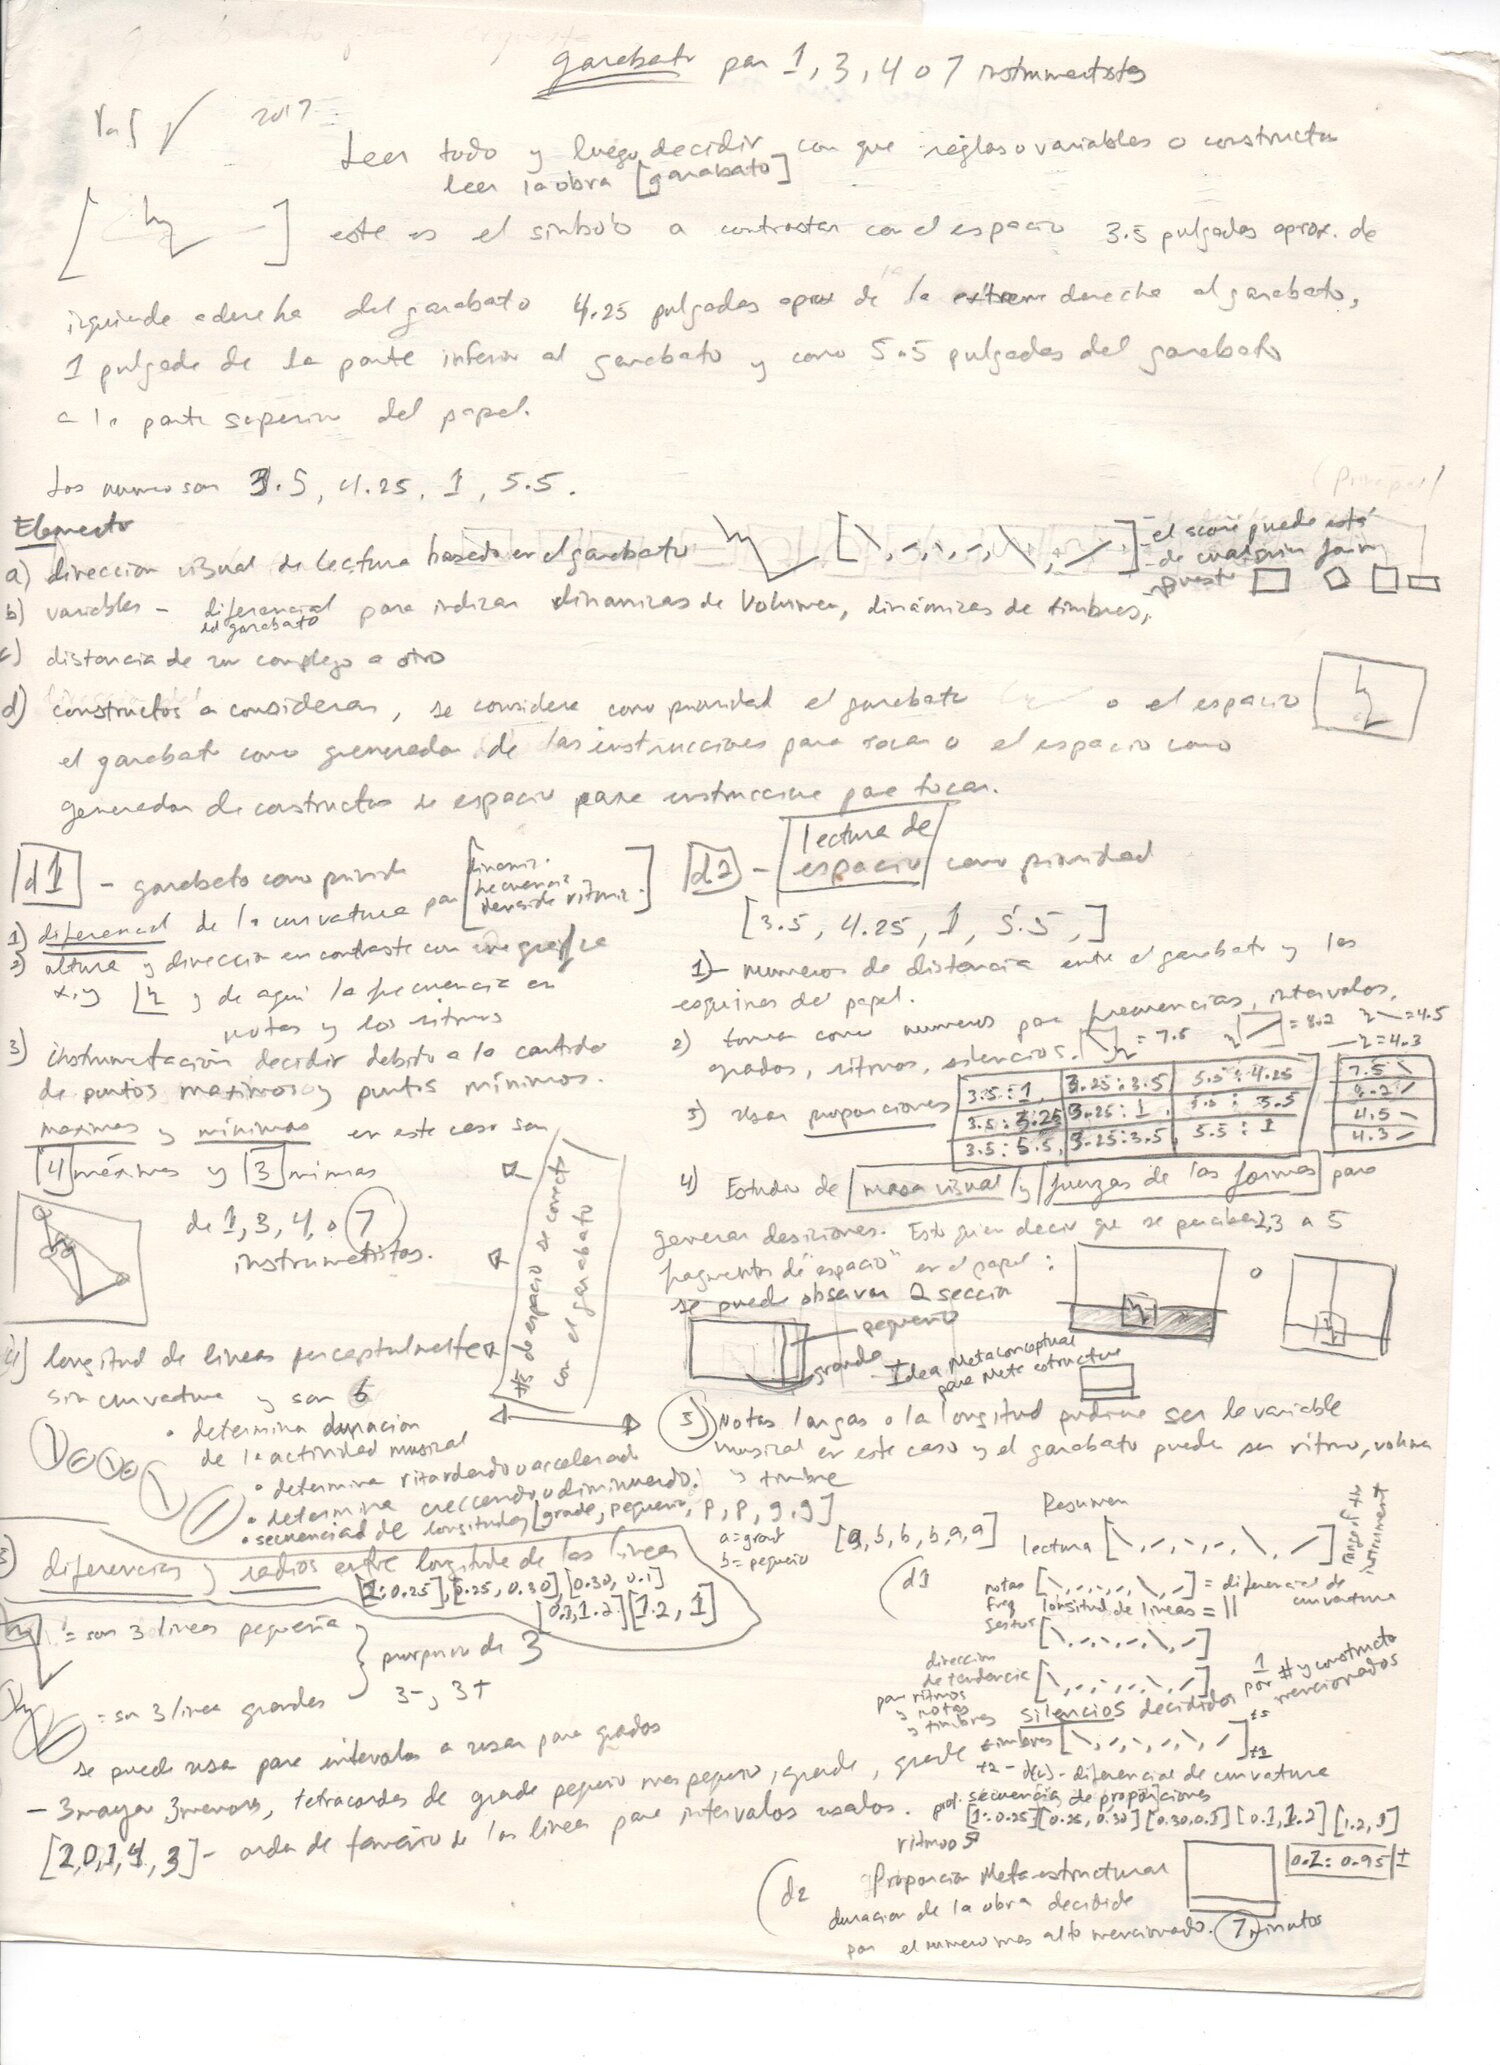 garabato para 1, 3, 4 o 7 instrumentistas
2017
Leer todo y luego decidir con que reglas o variables o constructos
leer la obra [garabato]
este es el simbolo a contrastar con el espacio 3.5 pulgadas aprox. de
izquierda a derecha del garabato 4.25 pulgadas aprox de la derecha al garabato,
1 pulgada de la parte inferior al garabato y como 5.5 pulgadas del garabato
a la parte superior del papel.
Los numeros son 3.5, 4.25, 1, 5.5.
Elementos
a) dirección visual de lectura basado en el garabato
el score puede estar
de cualquier forma
puesto
b) variables - diferencial para indicar dinamicas de volumen, dinámicas de timbres,
del garabato
c) distancia de un complejo a otro
d) constructos a considerar, se considera como prioridad el garabato o el espacio
el garabato como generador de las instrucciones para tocar o el espacio como
generador de constructos de espacio para instrucciones para tocar.
d1 - garabato como prioridad
1) diferencial de la curvatura para [dinamic.
frecuencia
densidad ritmic.]
2) altura y direccion en contraste con una grafica
x, y y de aqui la frecuencia en
notas y los ritmos
3) instrumentación decidir debido a la cantidad
de puntos maximos y puntos mínimos.
maximos y mínimos en este caso son
4 máximos y 3 minimos
de 1, 3, 4, o 7
instrumetistas.
4) longitud de lineas perceptualmente
sin curvatura y son 6
• determina duración
de la actividad musical
• determina ritardando o accelerado
• determina crescendo o diminuendo.
• secuencia de longitudes [grade, pequeño, p, p, g, g]
#s de espacio se conecta
con el garabato
5) diferencias y radios entre longitudes de las lineas
[1:0.25], [0.25, 0.30] [0.30, 0.1]
[0.1, 1.2] [1.2, 1]
= son 3 lineas pequeña
= son 3 linea grandes
3-, 3+
se puede usar para intervalos a usar para grados
- 3 mayor 3 menores, tetracordes de grade pequeño mas pequeño, grade, grade
[2,0,1,4,3] - orden de tamaño de las lineas para intervalos usados.
d2 - lectura de
espacio como prioridad
[3.5, 4.25, 1, 5.5,]
1) - numeros de distancia entre el garabato y las
esquinas del papel.
2) tomar como numeros para frecuencias, intervalos,
grados, ritmos, silencios.
= 7.5
= 8.2
=4.5
=4.3
3) usar proporciones
3.5:1 3.25:3.5 5.5:4.25
3.5:3.25 3.25:1 5.5:3.5
3.5:5.5, 3.25:3.5, 5.5:1
7.5
8.2
4.5
4.3
4) Estudio de masa visual y fuerzas de las formas para
generar desiciones. Esto quiere decir que se perciben 2,3 a 5
fragmentos de "espacio" en el papel:
o
se puede observar 2 seccion
pequeño
grande
Idea Metaconceptual
para Meta estructura
5) Notas largas o la longitud pudiera ser la variable
musical en este caso y el garabato puede ser ritmo, volumen
y timbre
a=grand
b=pequeño
[a,b,b,b,a,a]
Resumen
lectura
range of the
instrument
d1
notas
freq
= diferencial de
curvatura
longitud de lineas = 11
direccion
de tendencia
para ritmos
y notas
y timbres
1
por # y constructo
mencionados
silencios decididos
timbres
t1
t2 - d(c) - diferencial de curvatura
secuencia de proporciones
[1:0.25] [0.25, 0.30] [0.30, 0.1] [0.1, 1.2] [1.2, 1]
ritmos
d2 Proporcion Meta-estructural
0.2:0.95 ±
duracion de la obra decidide
por el numero mas alto mencionado. 7 minutos